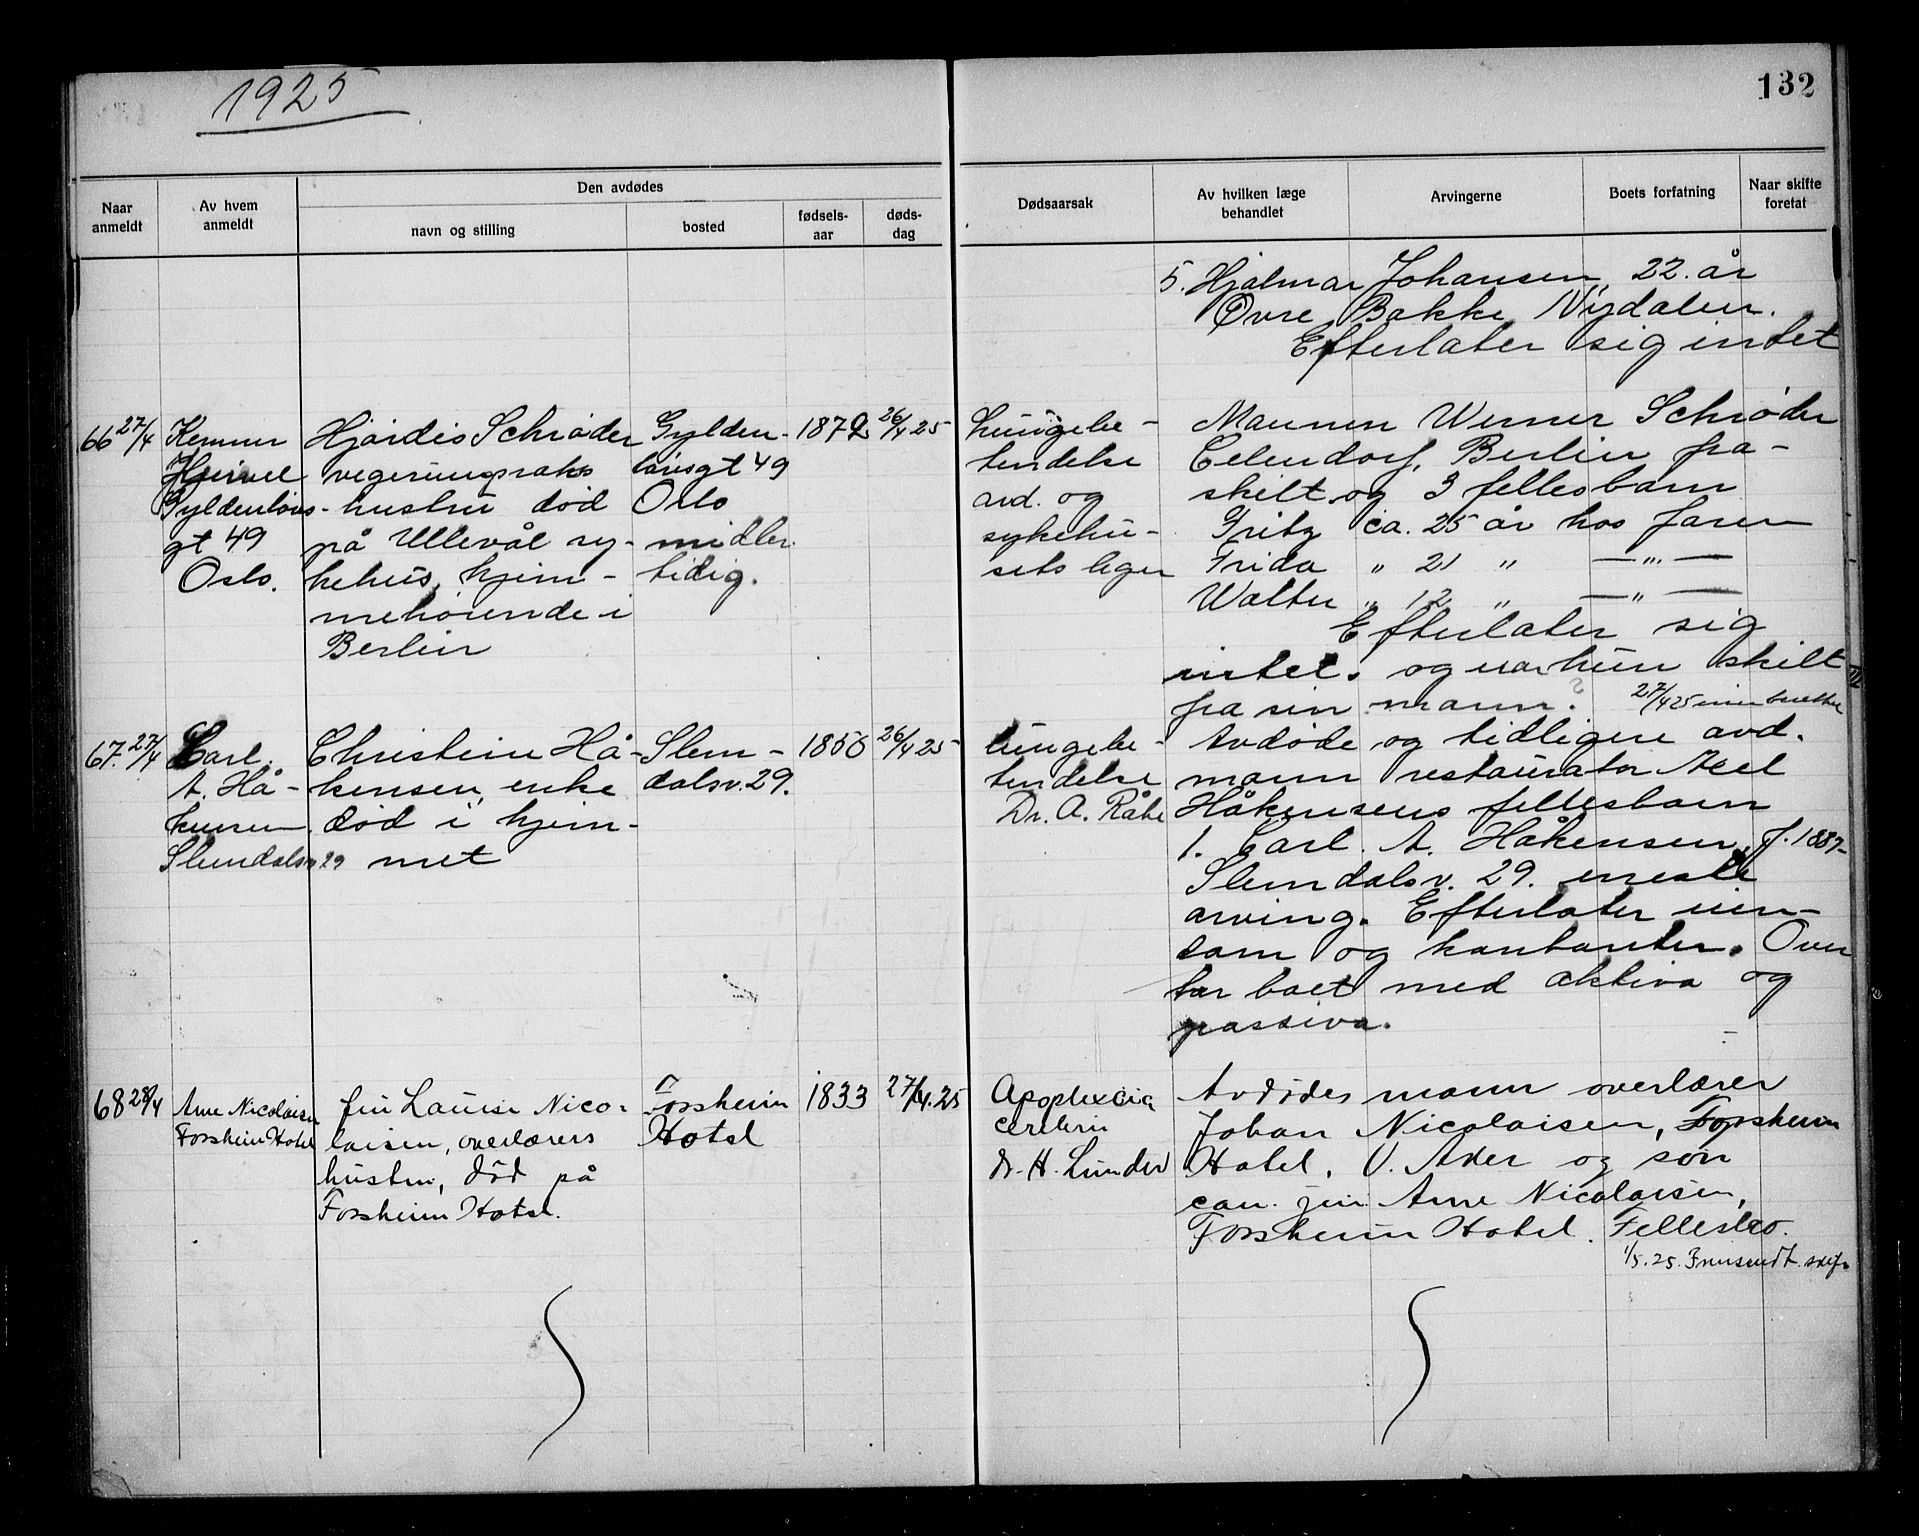 1925
132
Naar anmeldt
Av hvem anmeldt
Den avdødes
navn og stilling
bosted
fødsels-aar
døds-dag
Dødsaarsak
Av hvilken læge behandlet
Arvingerne
Boets forfatning
Naar skifte foretat
5. Hjalmar Johansen, 22 år
Øvre Bakke Nydalen.
Efterlater sig intet
66 27/4
Kemner
Gyldenløvs-
gt 49
Oslo.
Hjørdis Schrøder
regerungsraks
hustru død
på Ullevål sy-
kehus, hjem-
mehørende i
Berlin
Gylden-
løvsgt 49
Oslo
midler-
tidig.
1872
26/4 25
lungebe-
tendelse
avd. og
sykehu-
sets leger
Mannen Werner Schrøder
Celendorf, Berlin fra-
skilt og 3 fellesbarn
Fritz ca. 25 år hos faren
Frida " 21 " —"—
Walter " 12 " —"—
Efterlater sig
intet. og var hun skilt
fra sin mann?
27/4 25
67. 27/4
Carl
A. Hå-
kensen
Slemdalsv. 29
Christein Hå-
kensen, enke
død i hjem-
met
Slem-
dalsv. 29.
1850
26/4 25
lungebe-
tendelse
Dr. A. Råbe
Avdøde og tidligere avd.
mann restauratør Axel
Håkensens fellesbarn
1. Carl. A. Håkensen, f. 1887
Slemdalsv. 29. eneste
arving. Efterlater inn-
sam og kontanter. Over
tar boet med aktiva og
passiva.
68 28/4
Arne Nicolaisen
Forsheim Hotel
fru Lauise Nico-
laisen, overlærers
hustru, død på
Forsheim Hotel.
Forsheim
Hotel
1833
27/4.25
Apoplexia
cerebri
dr. H. Lunder
Avdødes mann overlærer
Johan Nicolaisen, Forsheim
Hotel, V. Aker og søn
can. jur. Arne Nicolaisen,
Forsheim Hotel. Fellesbo.
1/5.25.